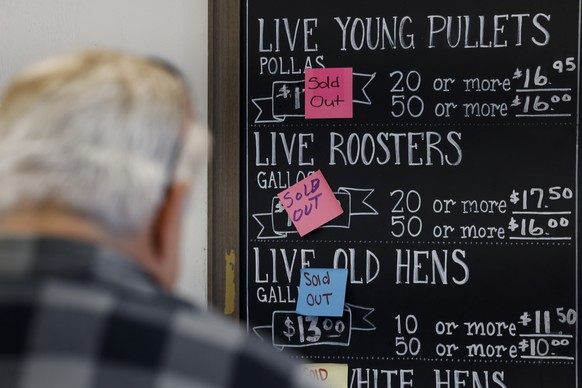 LIVE YOUNG PULLETS
POLLAS
Sold Out
20 or more $16.95
50 or more $16.00
LIVE ROOSTERS
GALLOS
SOLD OUT
20 or more $17.50
50 or more $16.00
LIVE OLD HENS
GALL
Sold OUT
$13.00
10 or more $11.50
50 or more $10.00
HITE HENS